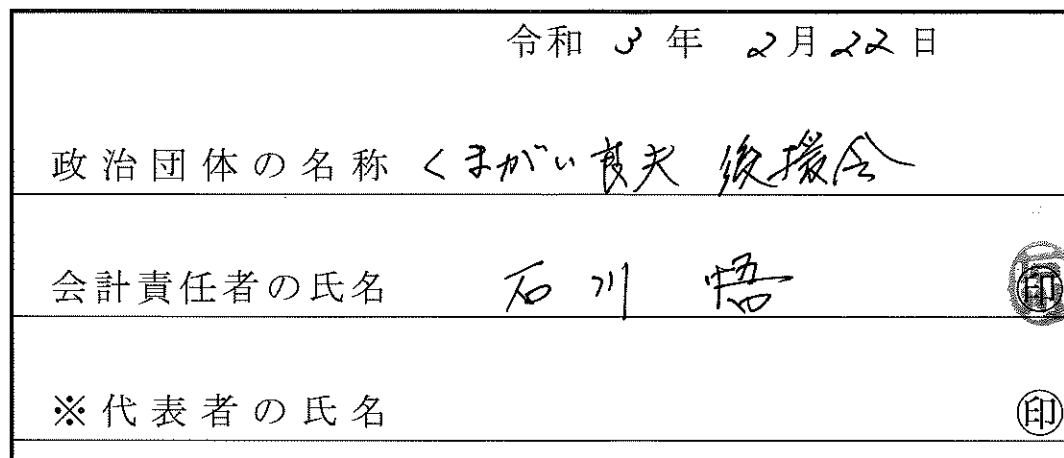 令和 3 年 2月22日
政治団体の名称 くまがい良夫 後援会
会計責任者の氏名 石川 悟 印
※代表者の氏名 印